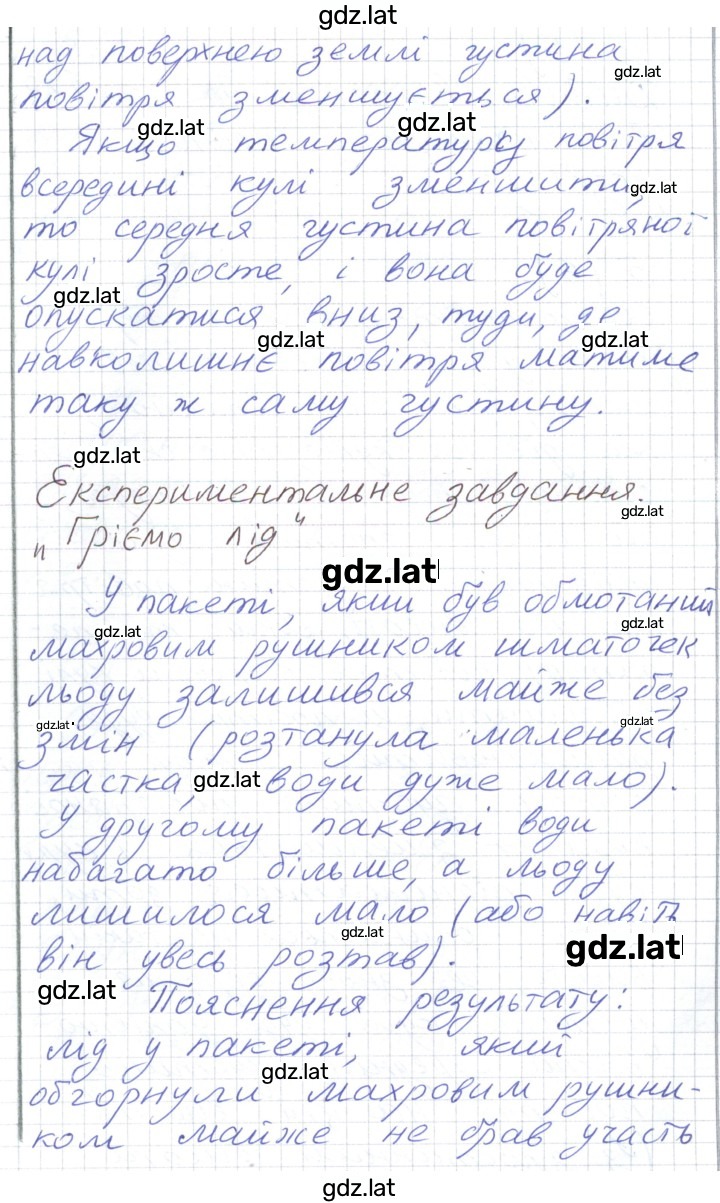 gdz.lat
над поверхнею землі густина
gdz.lat
повітря зменшується).
gdz.lat gdz.lat
Якщо температуру повітря
всередині кулі зменшити, gdz.lat
то середня густина повітряної
кулі зросте, і вона буде
gdz.lat
опускатися вниз, туди, де
gdz.lat gdz.lat
навколишнє повітря матиме
таку ж саму густину.
gdz.lat
Експериментальне завдання.
gdz.lat
„Гріємо лід"
gdz.lat
У пакеті, який був обмотаний
gdz.lat gdz.lat
махровим рушником шматочек
льоду залишився майже без
gdz.lat gdz.lat
змін (розтанула маленька
частка, gdz.lat води дуже мало).
У другому пакеті води
набагато більше, а льоду
лишилося мало (або навіть
gdz.lat gdz.lat
він увесь розтав).
gdz.lat
Пояснення результату:
лід у пакеті, який
gdz.lat
обгорнули махровим рушни-
ком майже не брав участь
gdz.lat